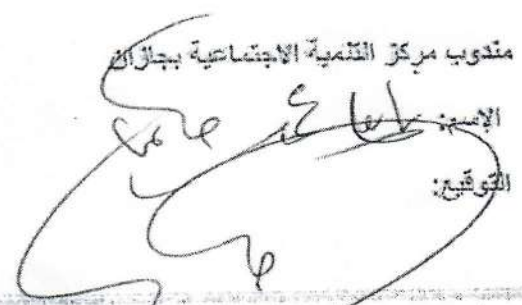 مندوب مركز التنمية الاجتماعية بجازان
الإسم:
التوقيع: